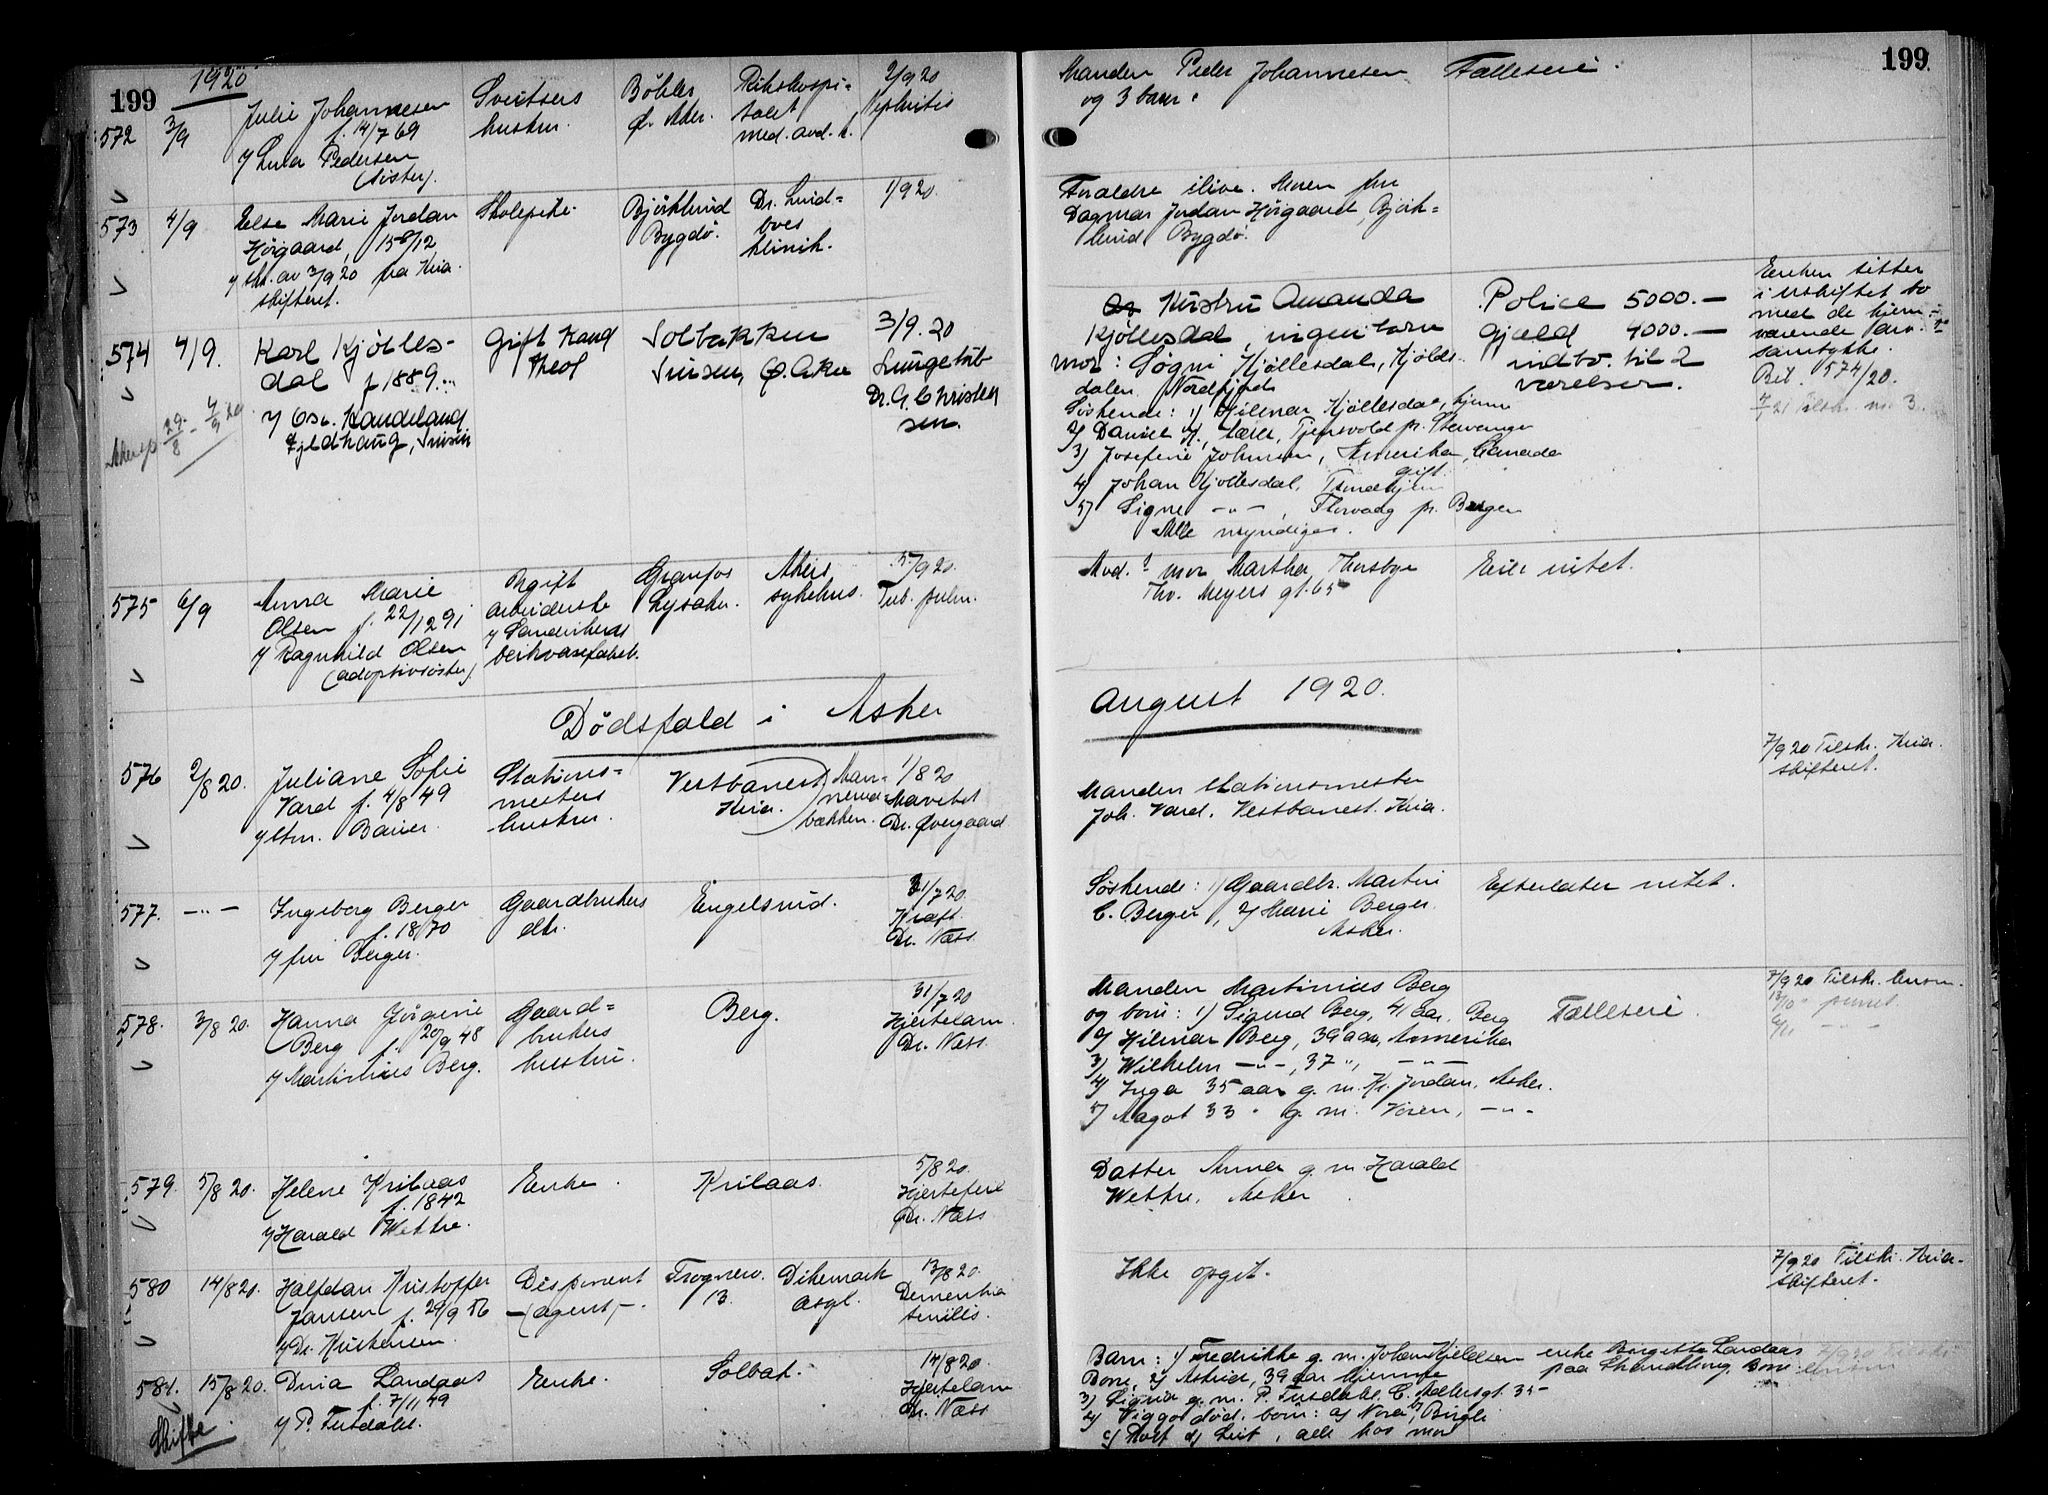 199
1920
572
3/9
Julie Johannesen
f. 14/7 69
v/ Lina Pedersen
(søster).
Sveitsers
hustru.
Böhler
Ø. Aker.
Rikshospi-
talet
med. avd. A.
2/9 20
Nephritis
573
4/9
Else Marie Jordan
Høigaard, 15 8/12
v/ skr. av 3/9 20 fra Kria.
skifteret.
Skolepike.
Bjørklund
Bygdø.
Dr. Lind-
boes
klinik.
1/9 20.
574
4/9.
Karl Kjølles-
dal f 1889.
v/ Osc. Kandeland
Fjeldhaug, Sinsen
Gift Kand
theol
Solbakken
Sinsen, Ø. Aker
3/9. 20
Lungetub
Dr. G. Christen
sen.
575
6/9
Anna Marie
Olsen f. 22/12 91
v/ Ragnhild Olsen
(adoptivsøster)
Ugift
arbeiderske
v/ Sandvikens
Granfos
Lysaker.
Akers
sykehus.
5/9 20.
Tub. pulm.
Dödsfald i Asker
576
2/8 20.
Juliane Sofie
Vard f. 4/8 49
v/ Itm. Bauer.
Stations-
mesters
hustru.
Vestbanest.
Kria.
1/8 20
Dr. Øvergaard
577.
-"-
Ingeborg Berger
f. 18/70
v/ fru Berger.
Gaardbrukers
dtr.
Engelsrud.
31/7 20.
Kræft.
Dr. Næss
578.
3/8 20.
Hanna Jörgine
Berg f. 20/9 48
v/ Martinius Berg.
Gaard-
brukers
hustru.
Berg.
31/7 20
Hjertelam.
Dr. Næss
579.
5/8 20.
Helene Krilaas
f. 1842
v/ Harald Wettre.
Enke.
Krilaas.
5/8 20.
Hjertefeil
Dr. Næss
580
14/8 20.
Halfdan Kristoffer
Jansen f. 29/9 56
v/ Dr. Kristensen.
Disponent
(agent)
Frognerv.
13.
Dikemark
asyl.
13/8 20.
Dementia
senilis.
581.
15/8 20.
Dina Landaas
f. 7/11 49
v/ P. Fusdahl.
Enke.
Solbak.
14/8 20.
Hjertelam
Dr. Næss
Skifte
199
Manden Peder Johannesen
og 3 barn.
Fælleseie.
Forældre ilive. Moren fru
Dagmar Jordan Høigaard, Bjørk-
lund Bygdø.
Hustru Amanda
Kjøllesdal, ingen barn
mor: Søgni Kjøllesdal, Kjølds-
dalen Nordfjord
Søskende: 1) Hilmar Kjøllesdal, hjemme
2) Daniel K., lærer, Tjensvold pr. Stavanger
3) Josefine Johnsen, Amerika, Canada
gift.
4) Johan Kjøllesdal, Trondhjem
5) Signe -"-, Florvaag pr. Bergen
Alle myndige.
Police 5000.-
Gjæld 4000.-
indbo. til 2
værelser.
Enken sitter
i uskiftet bo
med de hjem-
værende
samtykke.
Bil. 574/20.
mor Martha Thorsbye
Thv. Meyers gt. 65
Eier intet.
August 1920.
Manden stationsmester
Joh. Vard, Vestbanest. Kria.
7/9 20 Tilskr. Kria.
skifteret.
Søskende: 1) Gaardbr. Martin
C. Berger, 2) Marie Berger
Asker.
Efterlater intet.
Manden Martinius Berg
og barn: 1) Sigurd Berg, 41 aar, Berg
2) Hilmar Berg, 39 aar, Amerika
3) Wilhelm -"-, 37 ", -"-
4) Inga 35 aar g. m. Kr. Jordan, Asker.
5) Magot 33 " g. m. Vøien, -"-
Fælleseie.
Datter Anna g. m. Harald
Wettre, Asker.
Ikke opgit.
7/9 20 Tilskr. Kria.
skifteret.
Barn: 1) Fredrikke g. m. Johan Kjeldsen
2) Astrid, 39 aar hjemme
3) Signe g. m. P. Fusdahl, C. Adlersgt. 35
4) Viggo død. barn: a) Nora b) Birgit
c) Rolf d) Leif, alle hos mor
enke Birgitte Landaas
paa